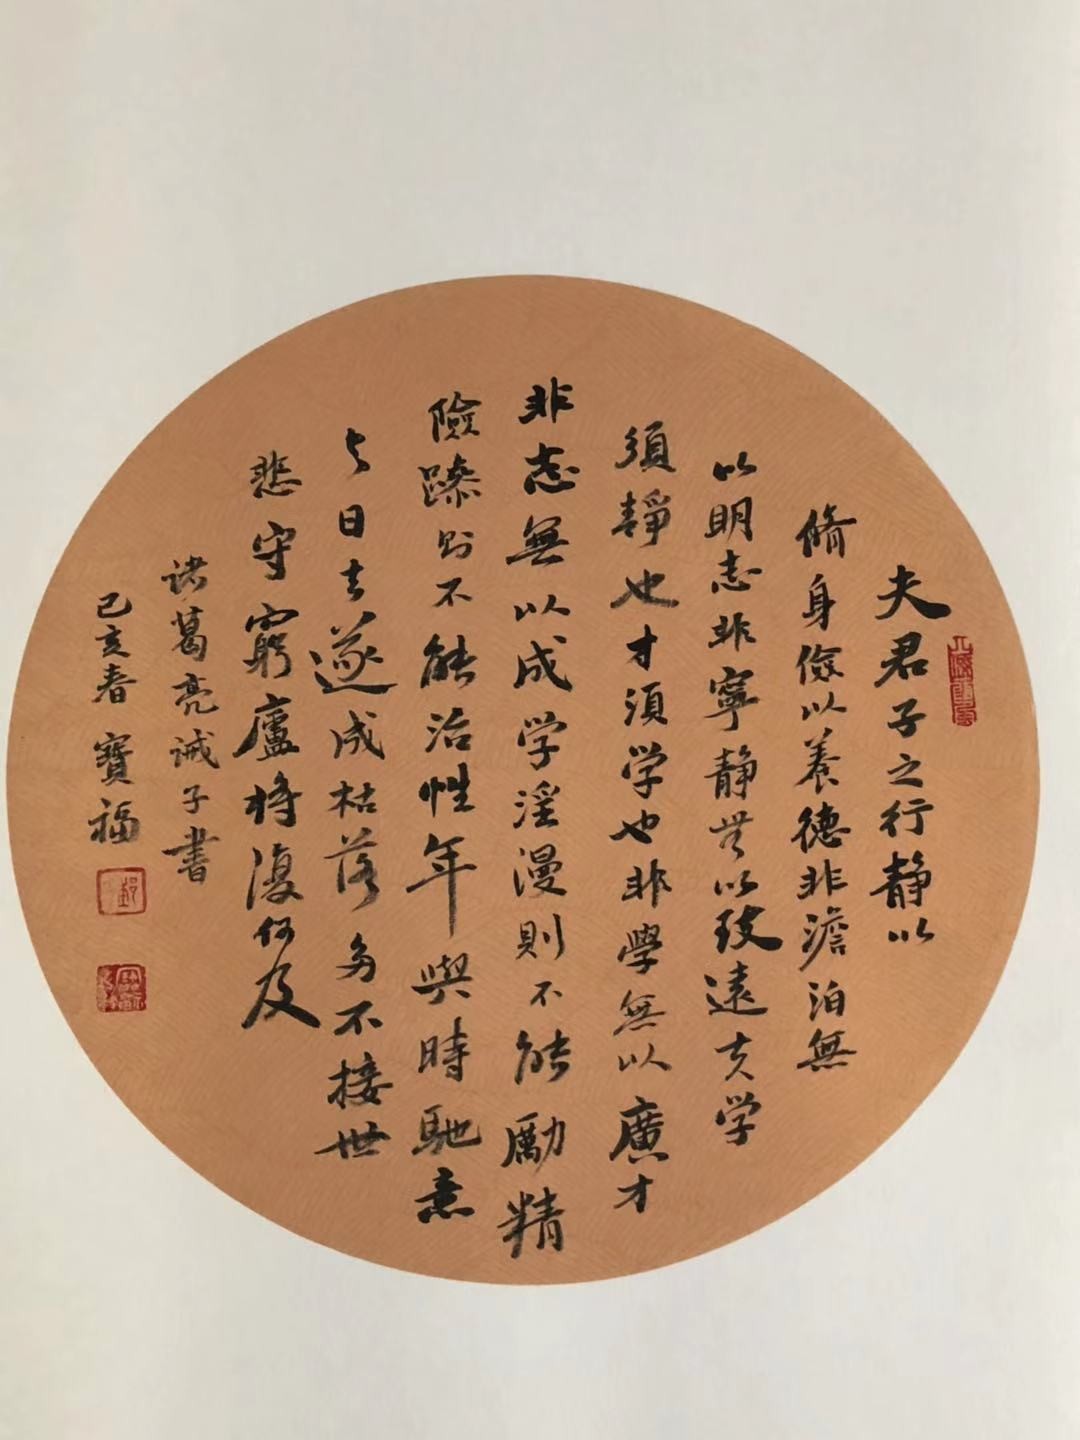 夫君子之行静以
脩身儉以養德非澹泊無
以明志非寧静無以致遠夫学
須静也才須学也非學無以廣才
非志無以成学淫漫則不能勵精
險躁則不能治性年與時馳意
与日去遂成枯落多不接世
悲守窮廬將復何及
诸葛亮诫子書
己亥春寶福